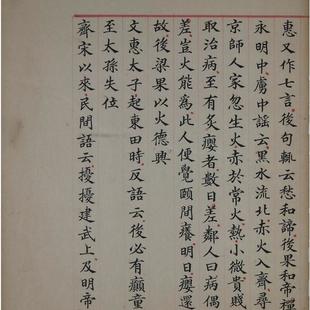 惠又作七言後句輒云愁和諦後果和帝禪
永明中虜中謡云黑水流北赤火入齊尋
京師人家忽生火赤於常火熱小微貴賤
取治病至有灸癭者數日差鄰人曰病偶
差豈火能為此人便覺頤間癢明日癭還
故後梁果以火德興
文惠太子起東田時反語云後必有癲童
至太孫失位
齊宋以來民間語云擾擾建武上及明帝